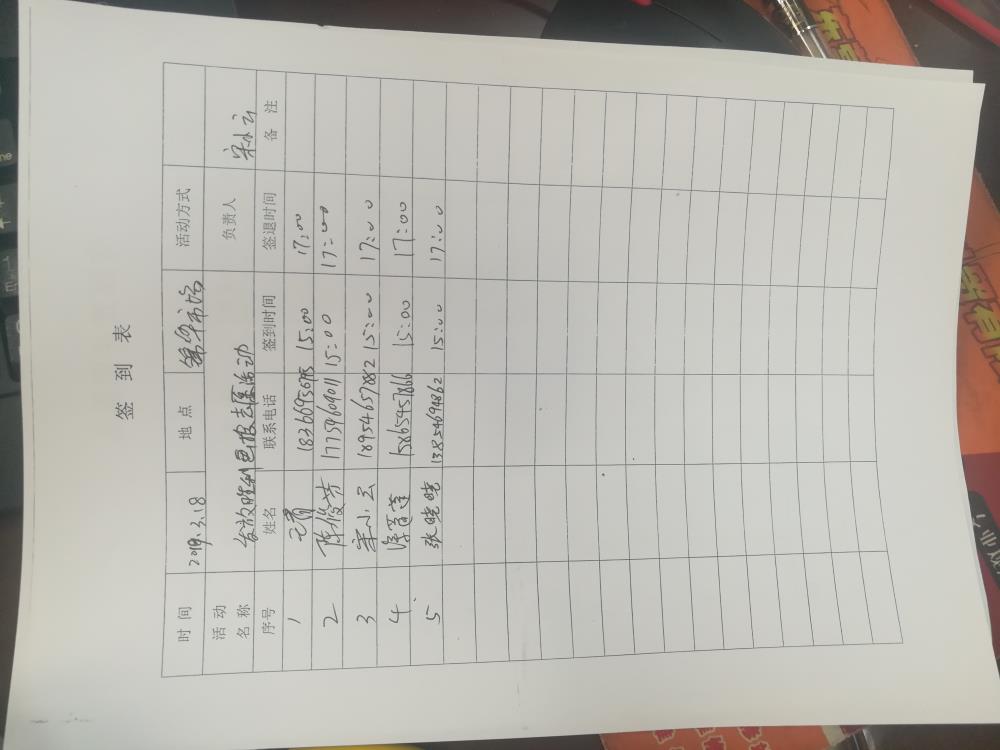 签 到 表
时 间 2019.3.18 地 点 市场 活动方式
活 动 名 称 发放胜利电报志愿活动 负责人 宋小云
序号 姓名 联系电话 签到时间 签退时间 备 注
1 15:00 17:00
2 陈俊芳 17754609011 15:00 17:00
3 宋小云 18954657882 15:00 17:00
4 15865457866 15:00 17:00
5 张晓晓 13854694862 15:00 17:00